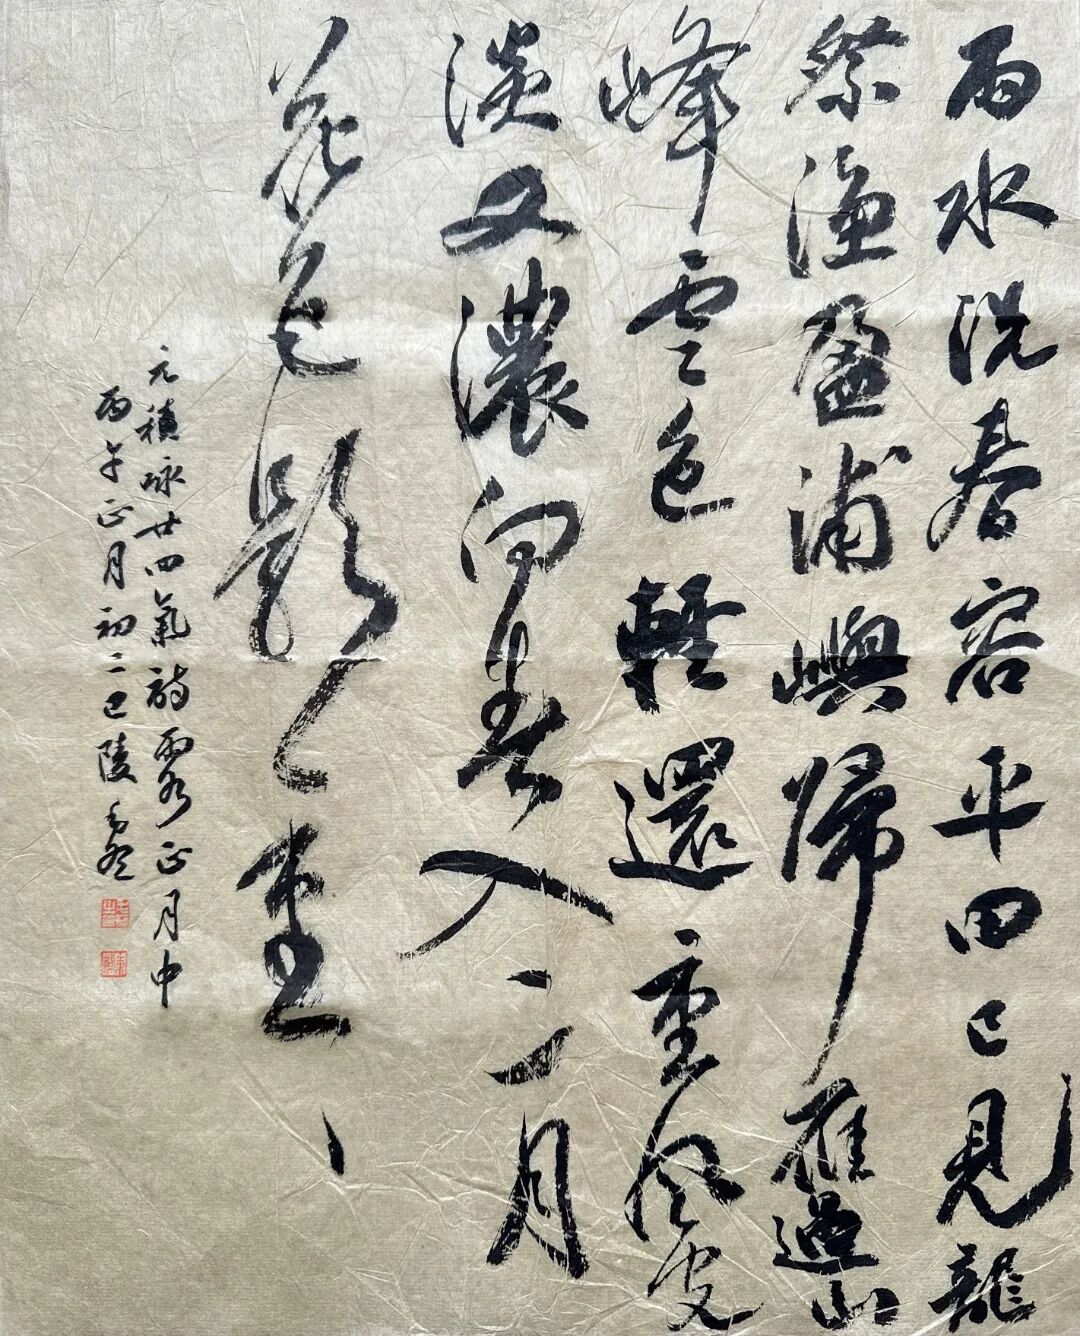 雨水洗春容平田已見龍
祭漁盈浦嶼歸雁過山
峰雲色輕還重風光
淡又濃向春入二月
花色影重〻
元稹咏廿四氣詩雨水正月中
丙午正月初二巴陵